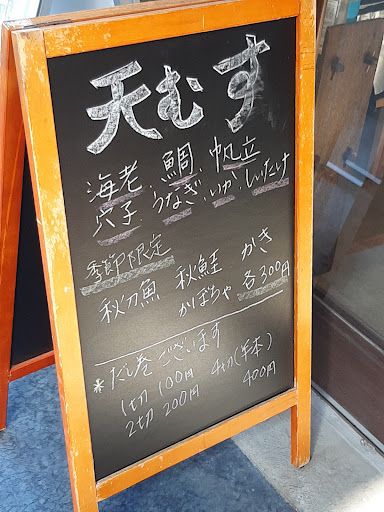 天むす
海老、鯛、帆立
穴子、うなぎ、いか、しいたけ
季節限定
秋刀魚 秋鮭 かき
かぼちゃ 各300円
*だし巻ございます
1切 100円 4切(半本)
2切 200円 400円